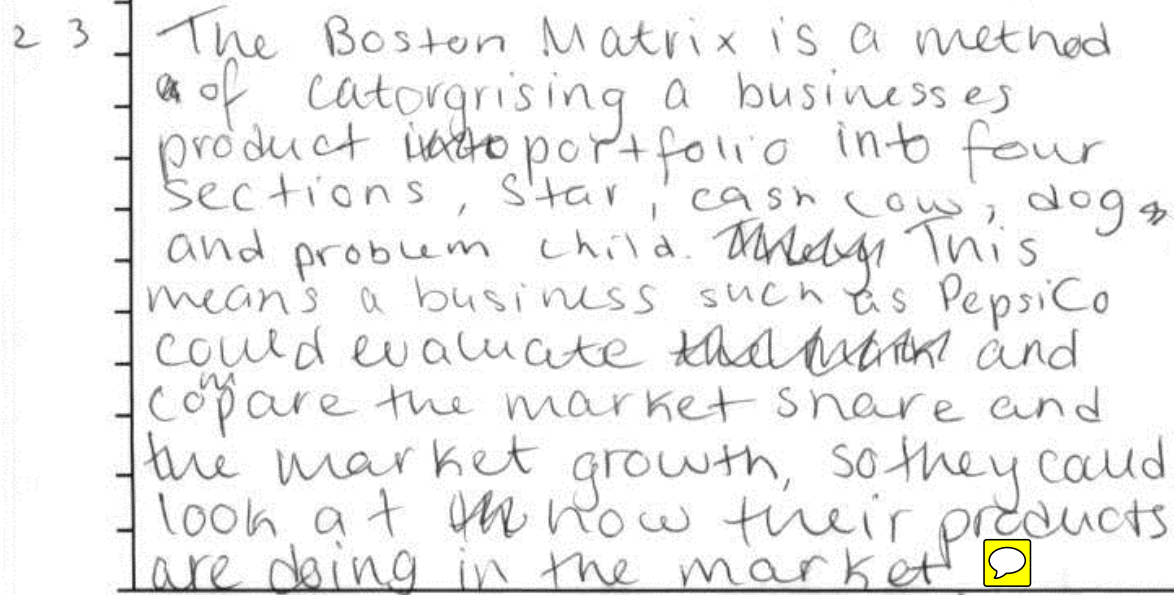 23 The Boston Matrix is a method
of catorgrising a businesses
product portfolio into four
sections, star, cash cow, dog
and problem child. This
means a business such as PepsiCo
could evaluate and
compare the market share and
the market growth, so they could
look at how their products
are doing in the market